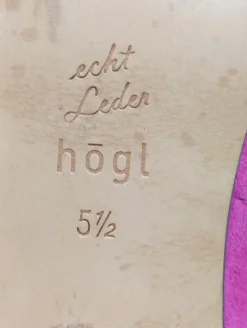 echt
Leder
hōgl
5½